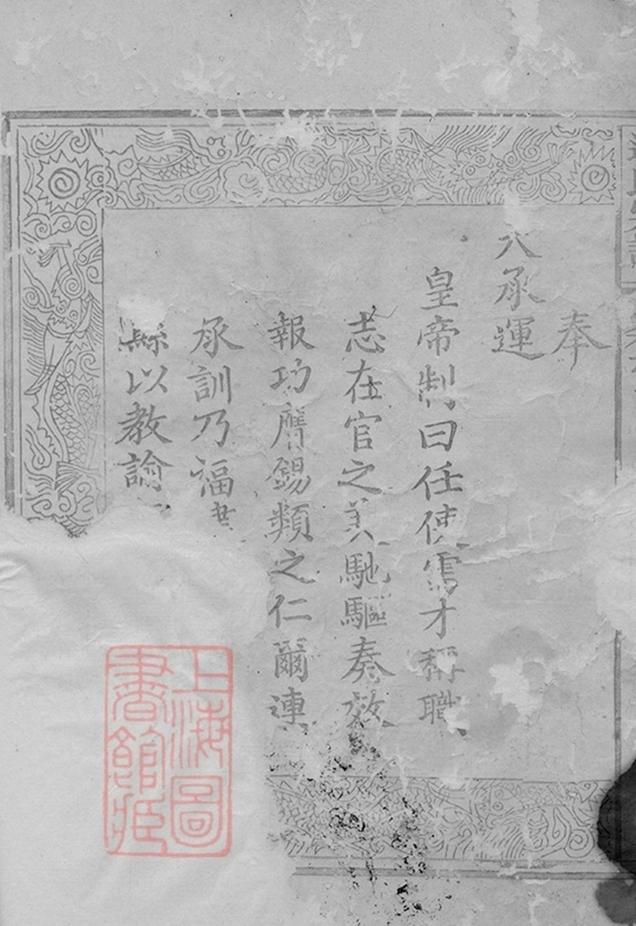 奉
天承運
皇帝制曰任使需才稱職
志在官之美馳驅奏效
報功膺錫類之仁爾連
承訓乃福
縣以教諭
上海圖書館藏